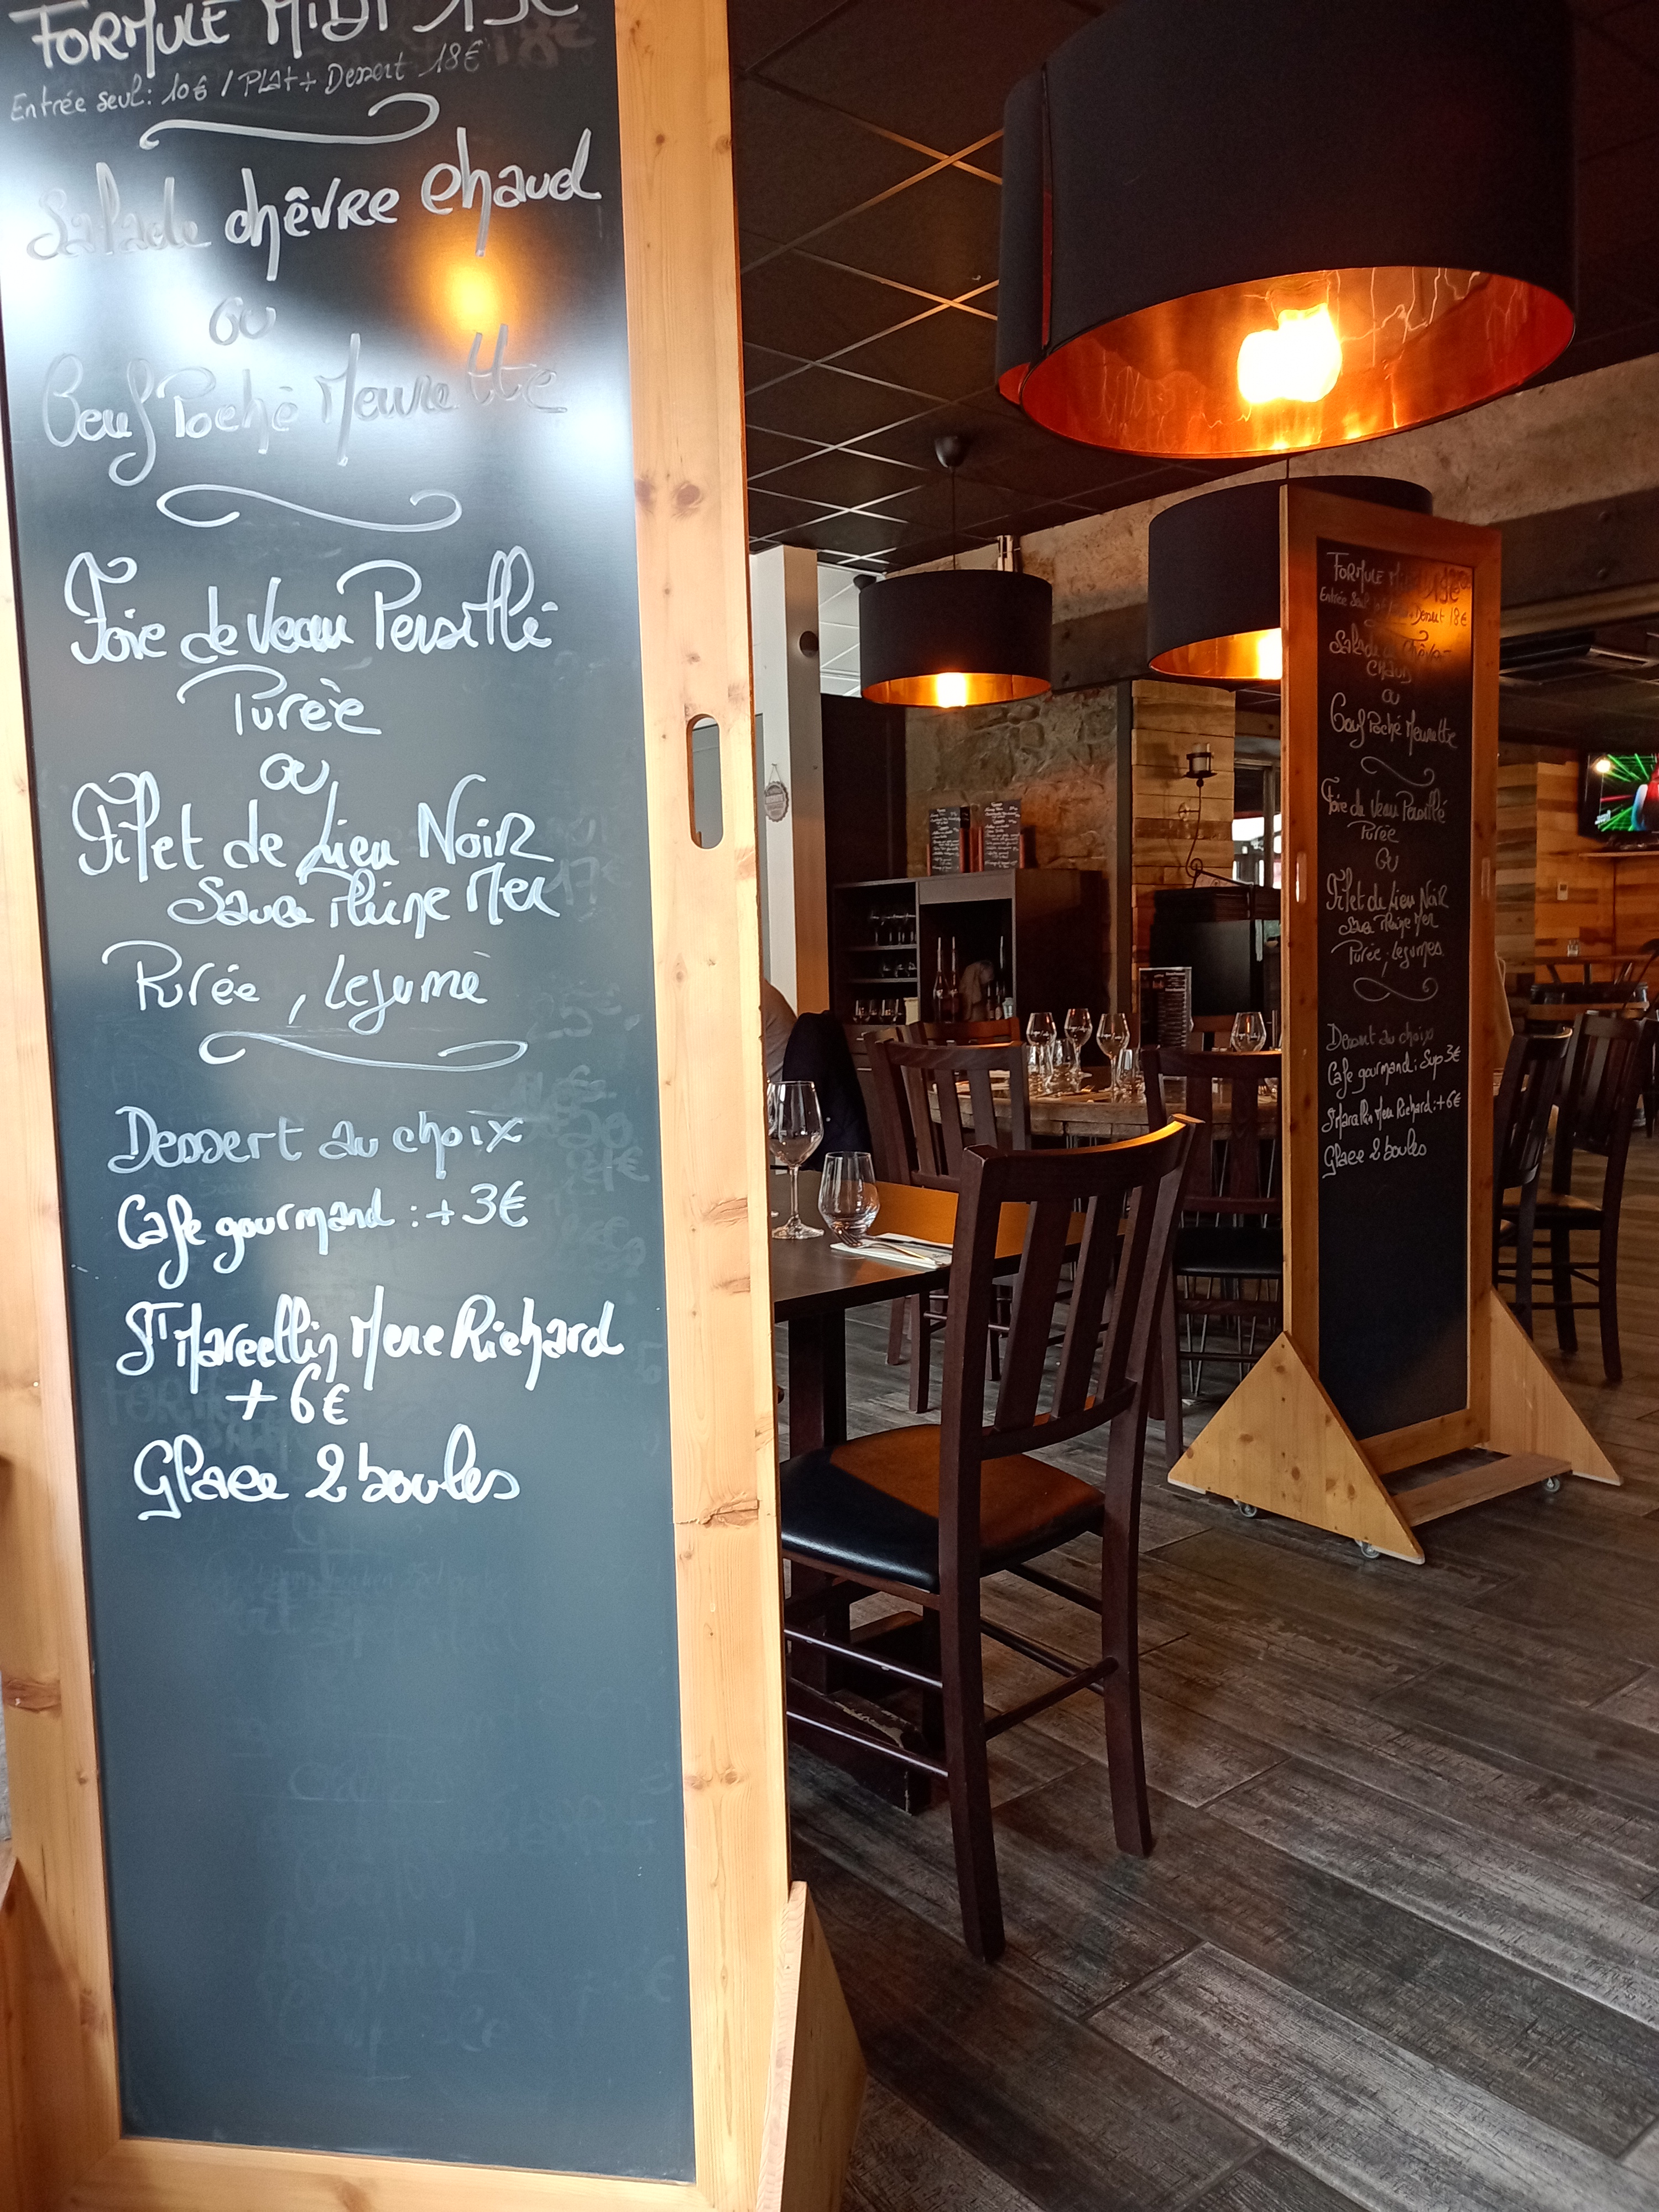 FORMULE MIDI 19€
Entrée seul: 10€ / PLAT + Dessert 18€
Salade chêvre chaud
ou
Oeuf Poché Meurette
Foie de Veau Persillé
Purèe
ou
Filet de Lieu Noir
Sauce Thine Mer
Purée, Legume
Dessert au choix
Cafe gourmand : +3€
St Marcellin Mere Richard
+ 6€
Glace 2 boules
FORMULE MIDI
Entrée Seul Dessert 18€
Salade de Chêvre
CHAUD
ou
Oeuf Poché Meurette
Foie de Veau Persillé
Purée
ou
Filet de Lieu Noir
Purée, Legumes
Dessert au choix
Cafe gourmand: Sup 3€
St Marcellin Mere Richard: +6€
Glace 2 boules